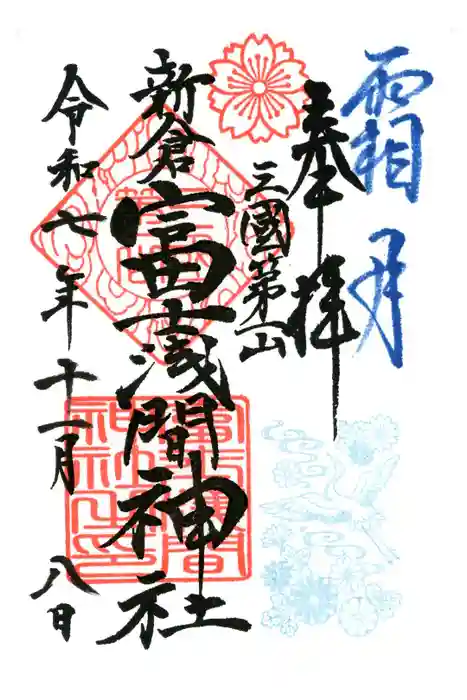 霜月
奉拝
三國第一山
新倉
富士浅間神社
令和七年十一月八日